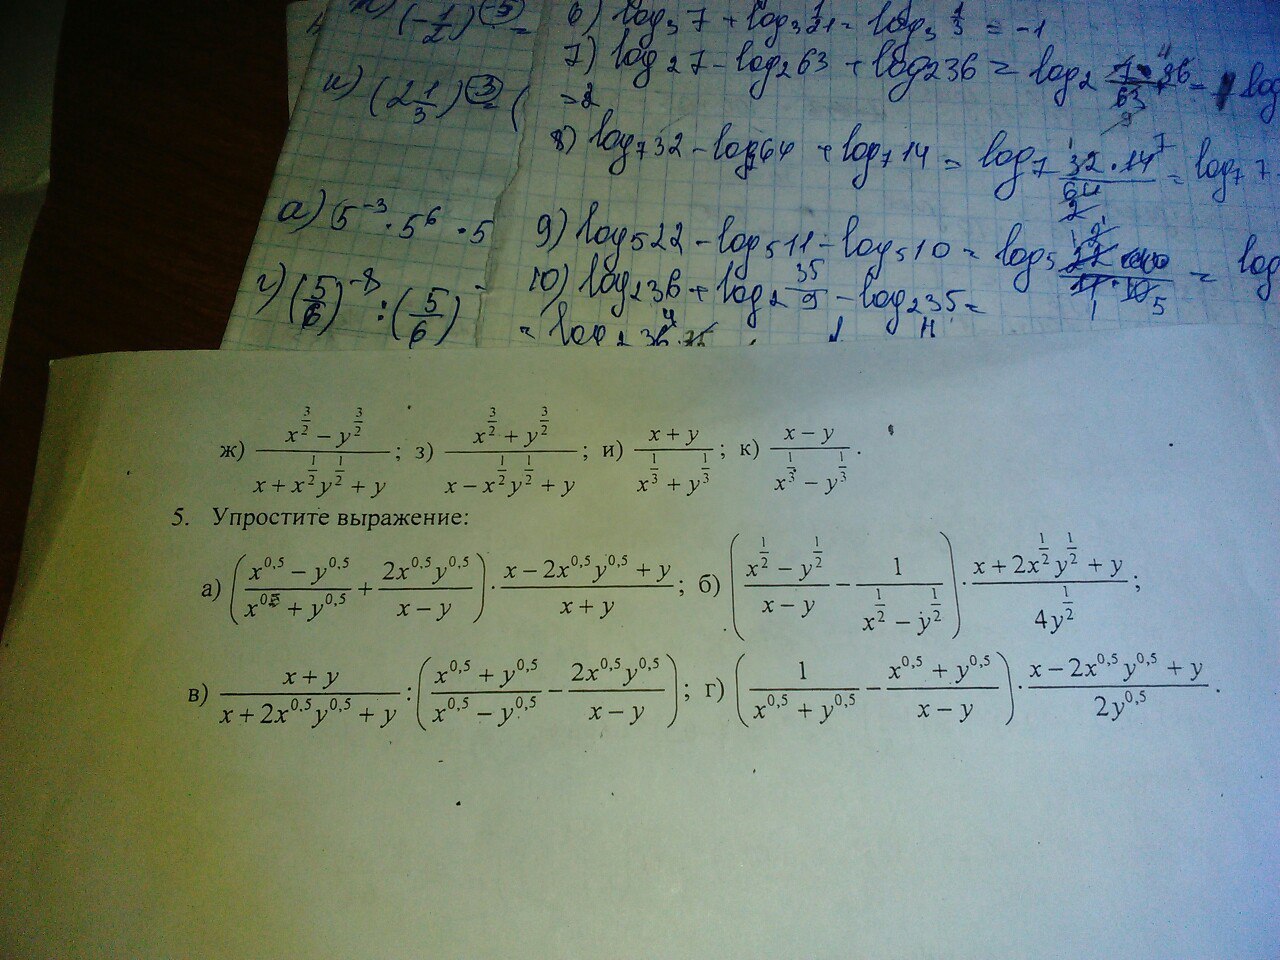 (-1/2)^(-5) =
6) log₃7 + log₃ 1/21 = log₃ 1/3 = -1
и) (2 1/3)^(-3) = (
7) log₂7 - log₂63 + log₂36 = log₂
= 2
8) log₇32 - log₇64 + log₇14 = log₇ (32·14)/64 = log₇7
а) 5⁻³ · 5⁶ · 5
9) log₅22 - log₅11 - log₅10 = log₅
г) (5/6)⁻⁸ : (5/6)
10) log₂36 + log₂ 35/9 - log₂35 =
= log₂36
ж) (x^(3/2) - y^(3/2))/(x + x^(1/2)y^(1/2) + y); з) (x^(3/2) + y^(3/2))/(x - x^(1/2)y^(1/2) + y); и) (x + y)/(x^(1/3) + y^(1/3)); к) (x - y)/(x^(1/3) - y^(1/3)).
5. Упростите выражение:
а) ((x^0,5 - y^0,5)/(x^0,5 + y^0,5) + (2x^0,5y^0,5)/(x - y)) · (x - 2x^0,5y^0,5 + y)/(x + y); б) ((x^(1/2) - y^(1/2))/(x - y) - 1/(x^(1/2) - y^(1/2))) · (x + 2x^(1/2)y^(1/2) + y)/(4y^(1/2));
в) (x + y)/(x + 2x^0,5y^0,5 + y) : ((x^0,5 + y^0,5)/(x^0,5 - y^0,5) - (2x^0,5y^0,5)/(x - y)); г) (1/(x^0,5 + y^0,5) - (x^0,5 + y^0,5)/(x - y)) · (x - 2x^0,5y^0,5 + y)/(2y^0,5).